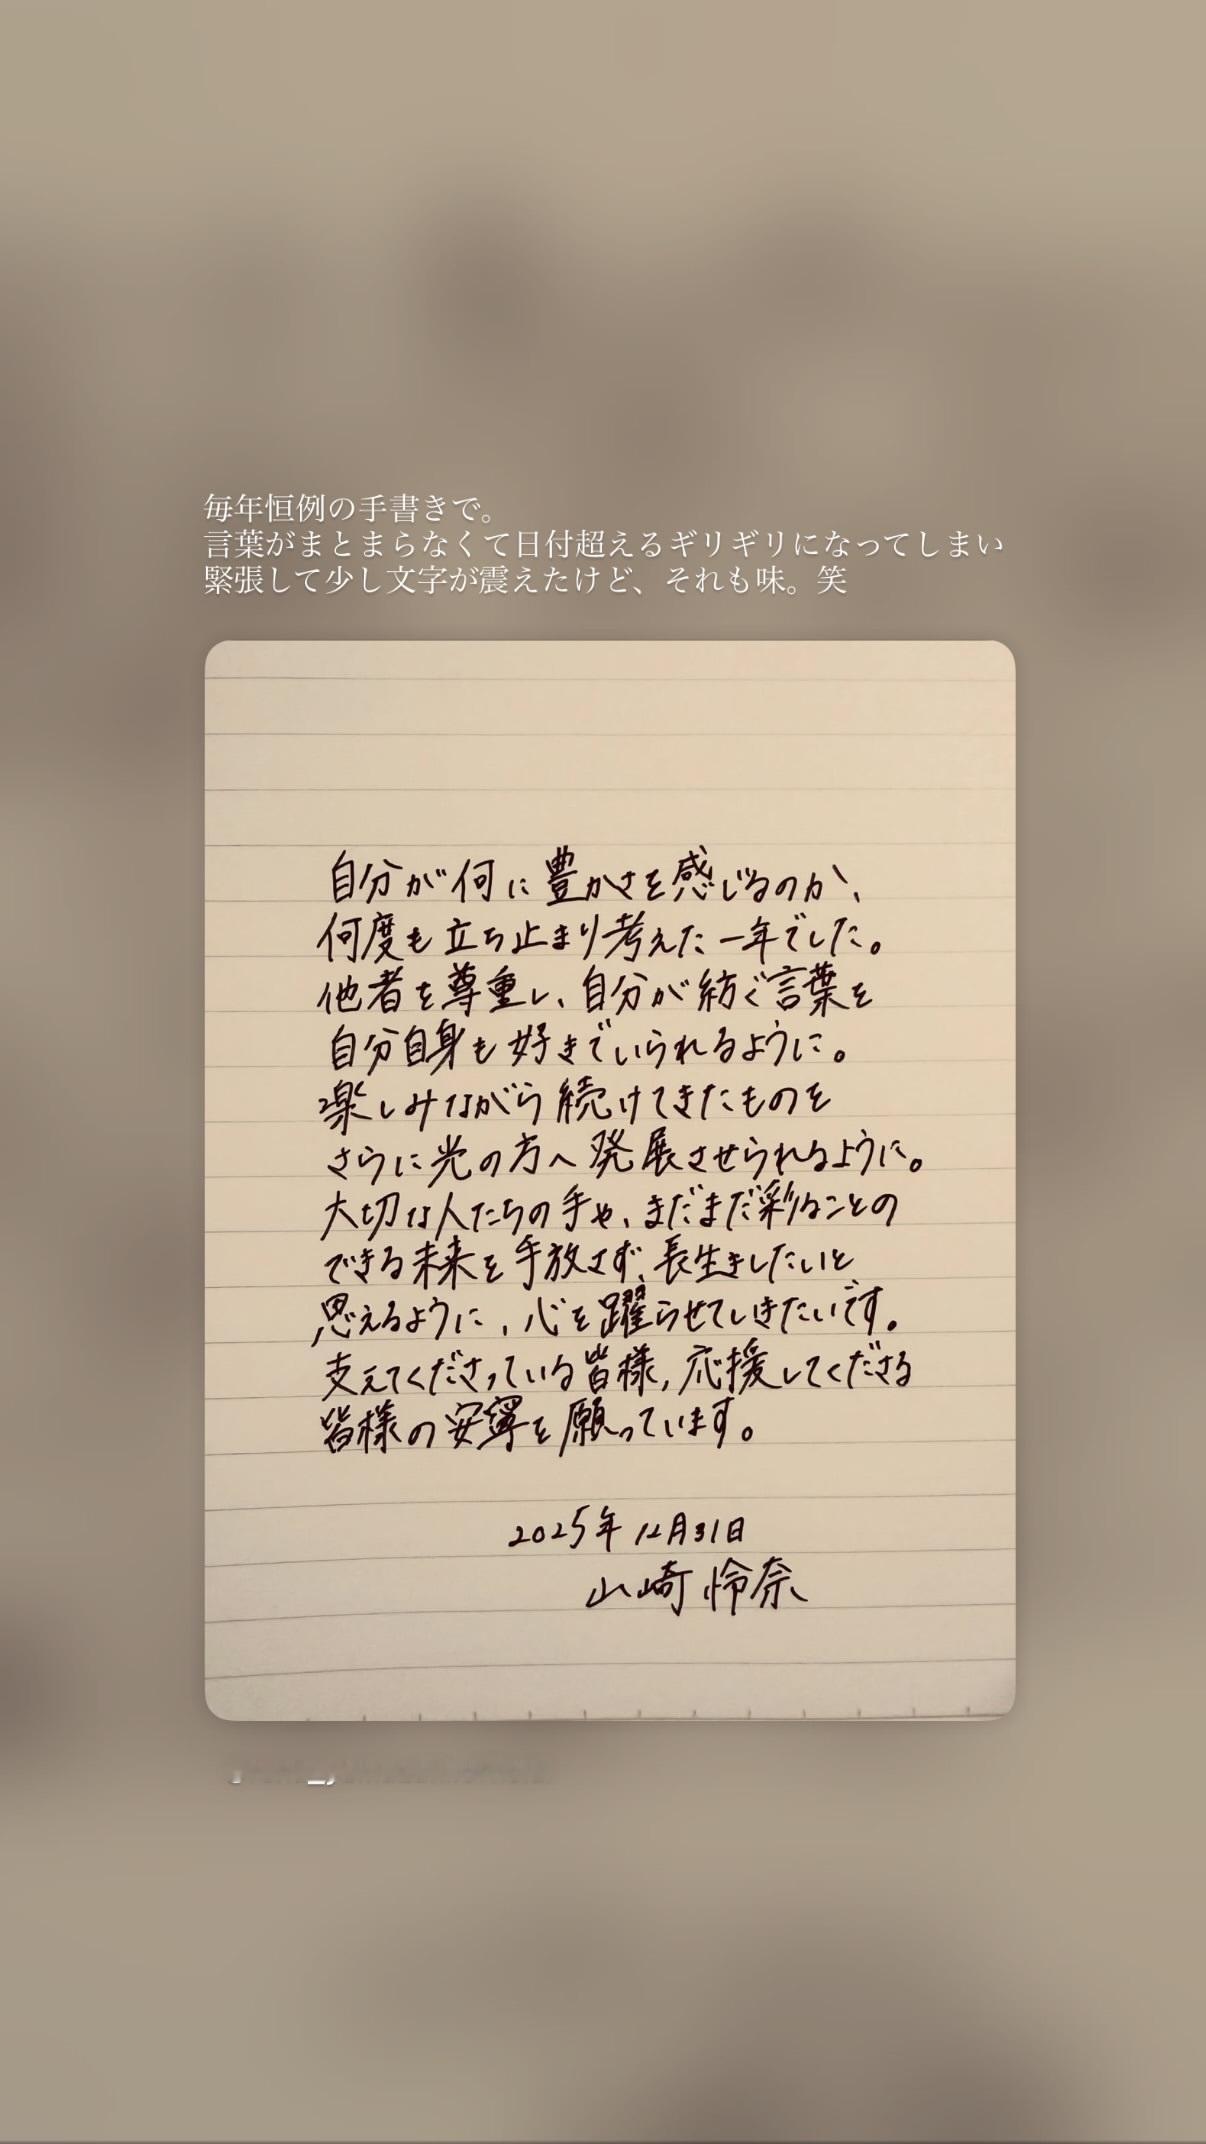 毎年恒例の手書きで。
言葉がまとまらなくて日付超えるギリギリになってしまい
緊張して少し文字が震えたけど、それも味。笑
自分が何に豊かさを感じるのか、
何度も立ち止まり考えた一年でした。
他者を尊重し、自分が紡ぐ言葉を
自分自身も好きでいられるように。
楽しみながら続けてきたものを
さらに光の方へ発展させられるように。
大切な人たちの手や、まだまだ彩ることの
できる未来を手放さず、長生きしたいと
思えるように、心を躍らせていきたいです。
支えてくださっている皆様、応援してくださる
皆様の安寧を願っています。
2025年12月31日
山崎怜奈